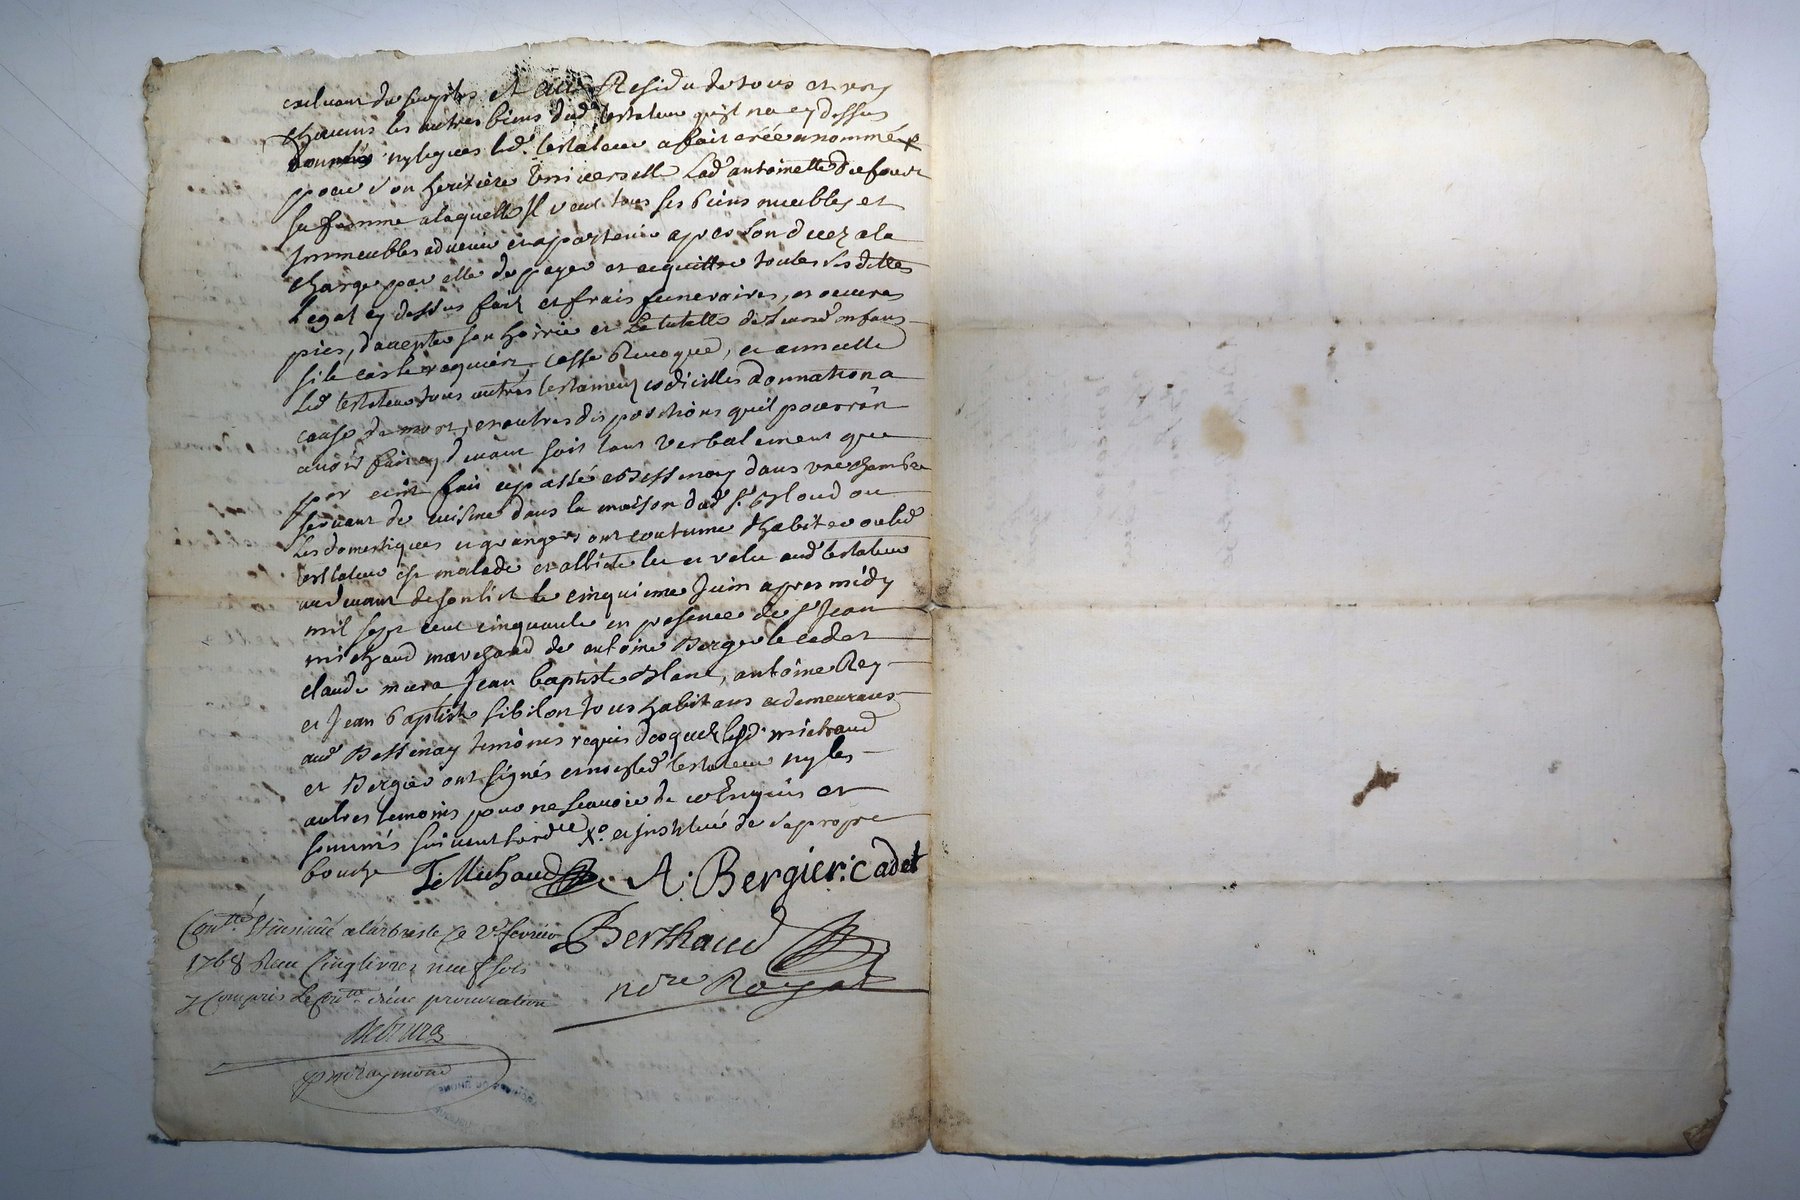 et au Residu de tous et un
chacuns les autres biens dud testateur qu'il na cy dessus
donnés ny legués led. testateur a fait créé a nommé
pour son heritière universelle Lad antoinette Dufour
sa femme a laquelle Il veut tous ses biens meubles et
Immeubles advenir et apartenir apres son decez a la
charge par elle de payer et acquitter toutes ses dettes
Legat cy dessus fait et frais funeraires, et oeuvres
pies, d'accepter son hoirie et La tutelle de leurd enfans
si le cas le requiert, Casse Revoque, et annulle
Led testateur tous autres testamens codicilles donnation a
cause de mort, et autres dispositions qu'il pourroit
avoir fait cy devant soit tant verbalement que
par ecrit fait et passé a Bessenay dans une chambre
servant de cuisine dans la maison dud Sr. Bloud ou
Les domestiques et grangers ont coutume d'habiter ou led
testateur est malade et allité lu et relu aud testateur
au devant de son lit le cinquieme Juin apres midy
mil sept cent cinquante en presence de Sr Jean
michaud marchand de antoine Bergier le cadet
claude mura Jean baptiste Blanc, antoine Rey
et Jean baptiste sibilon tous habitans et demeurans
aud Bessenay temoins requis desquels lesd. michaud
et Bergier ont signés et non led testateur ny les
autres temoins pour ne scavoir de ce Enquis et
sommés suivant lord.ce et institué de sa propre
bouche J. Michaud A. Bergier: Cadet
Berthaud
nore Royal
Contlé Insinué a larbresle Ce 2e fevrier
1768 Reçu Cinq livres neuf sols
y Compris Le Contle d'une procuration